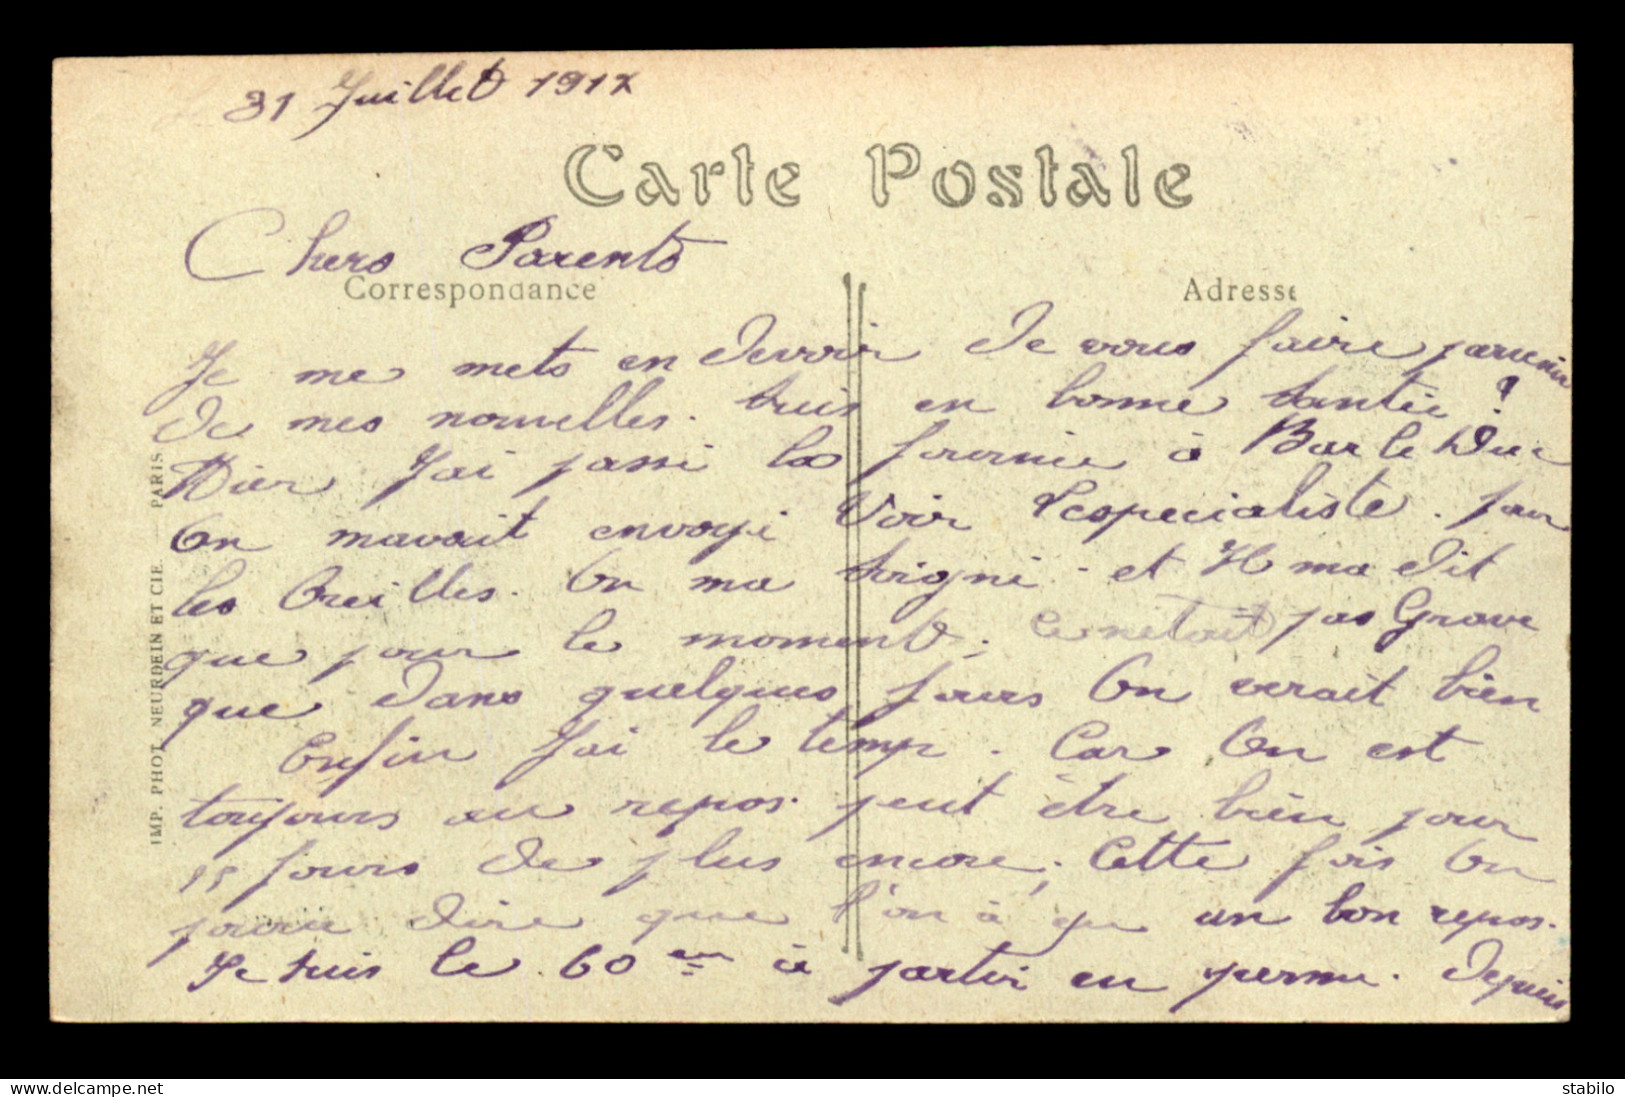 31 Juillet 1917
Carte Postale
Chers Parents
Correspondance
Adresse
Je me mets en devoir de vous faire parvenir
de mes nouvelles. suis en bonne santée !
Hier J'ai passé la journée à Bar le Duc
On mavait envoyé voir Lespecialiste. pour
les Oreilles. On ma soigné - et Il ma dit
que pour le moment, ce netait pas Grave
que dans quelques jours On verait bien
Enfin J'ai le temp. Car On est
toujours au repos. peut être bien pour
15 jours de plus encore, Cette fois On
poura dire que l'on à yu un bon repos.
Je suis le 60em à partir en perme. Depuis
IMP. PHOT. NEURDEIN ET CIE. — PARIS
www.delcampe.net
stabilo